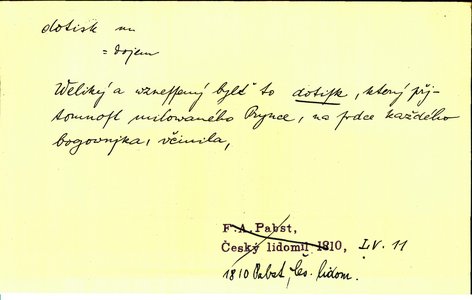 dotisk m
= dojem
Weliký a wznessený bylť to dotisk, který přj-
tomnost milowaného Prynce, na srdce každého
bogownjka, včinila,
F. A. Pabst,
Český lidomil 1810, IV. 11
1810 Pabst, Čes. lidom.